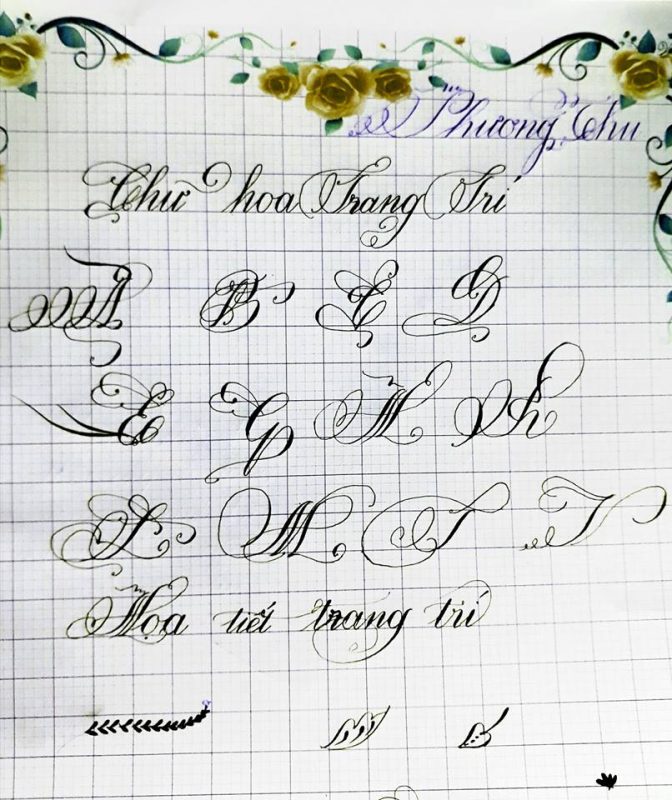 Phương Thu
Chữ hoa Trang Trí
A B C D
E G H K
L M T T
Họa tiết trang trí